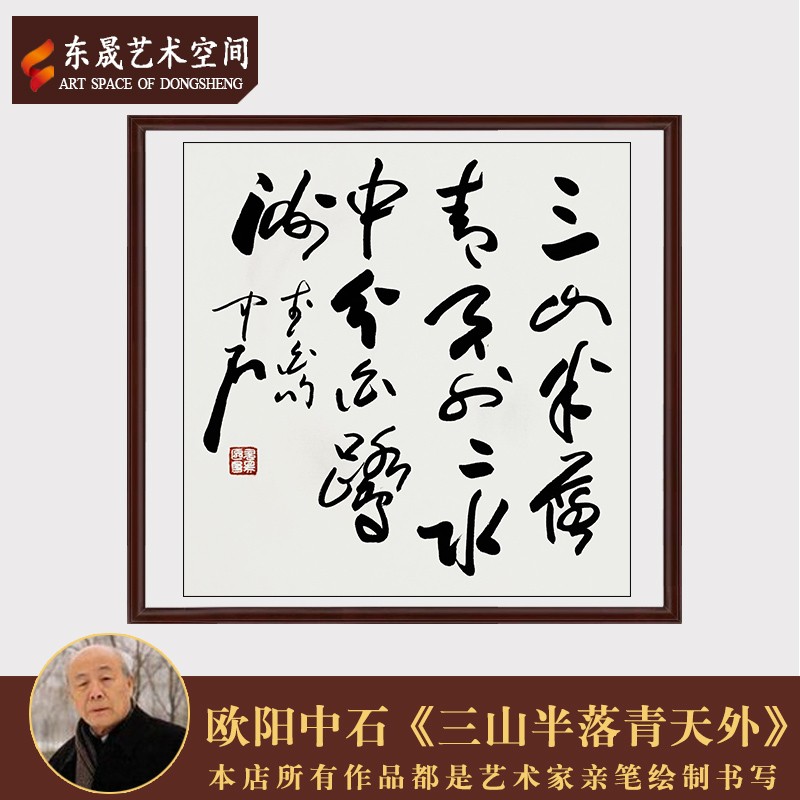 东晟艺术空间
ART SPACE OF DONGSHENG
三山半落
青天外二水
中分白鷺
洲
中石
欧阳中石《三山半落青天外》
本店所有作品都是艺术家亲笔绘制书写